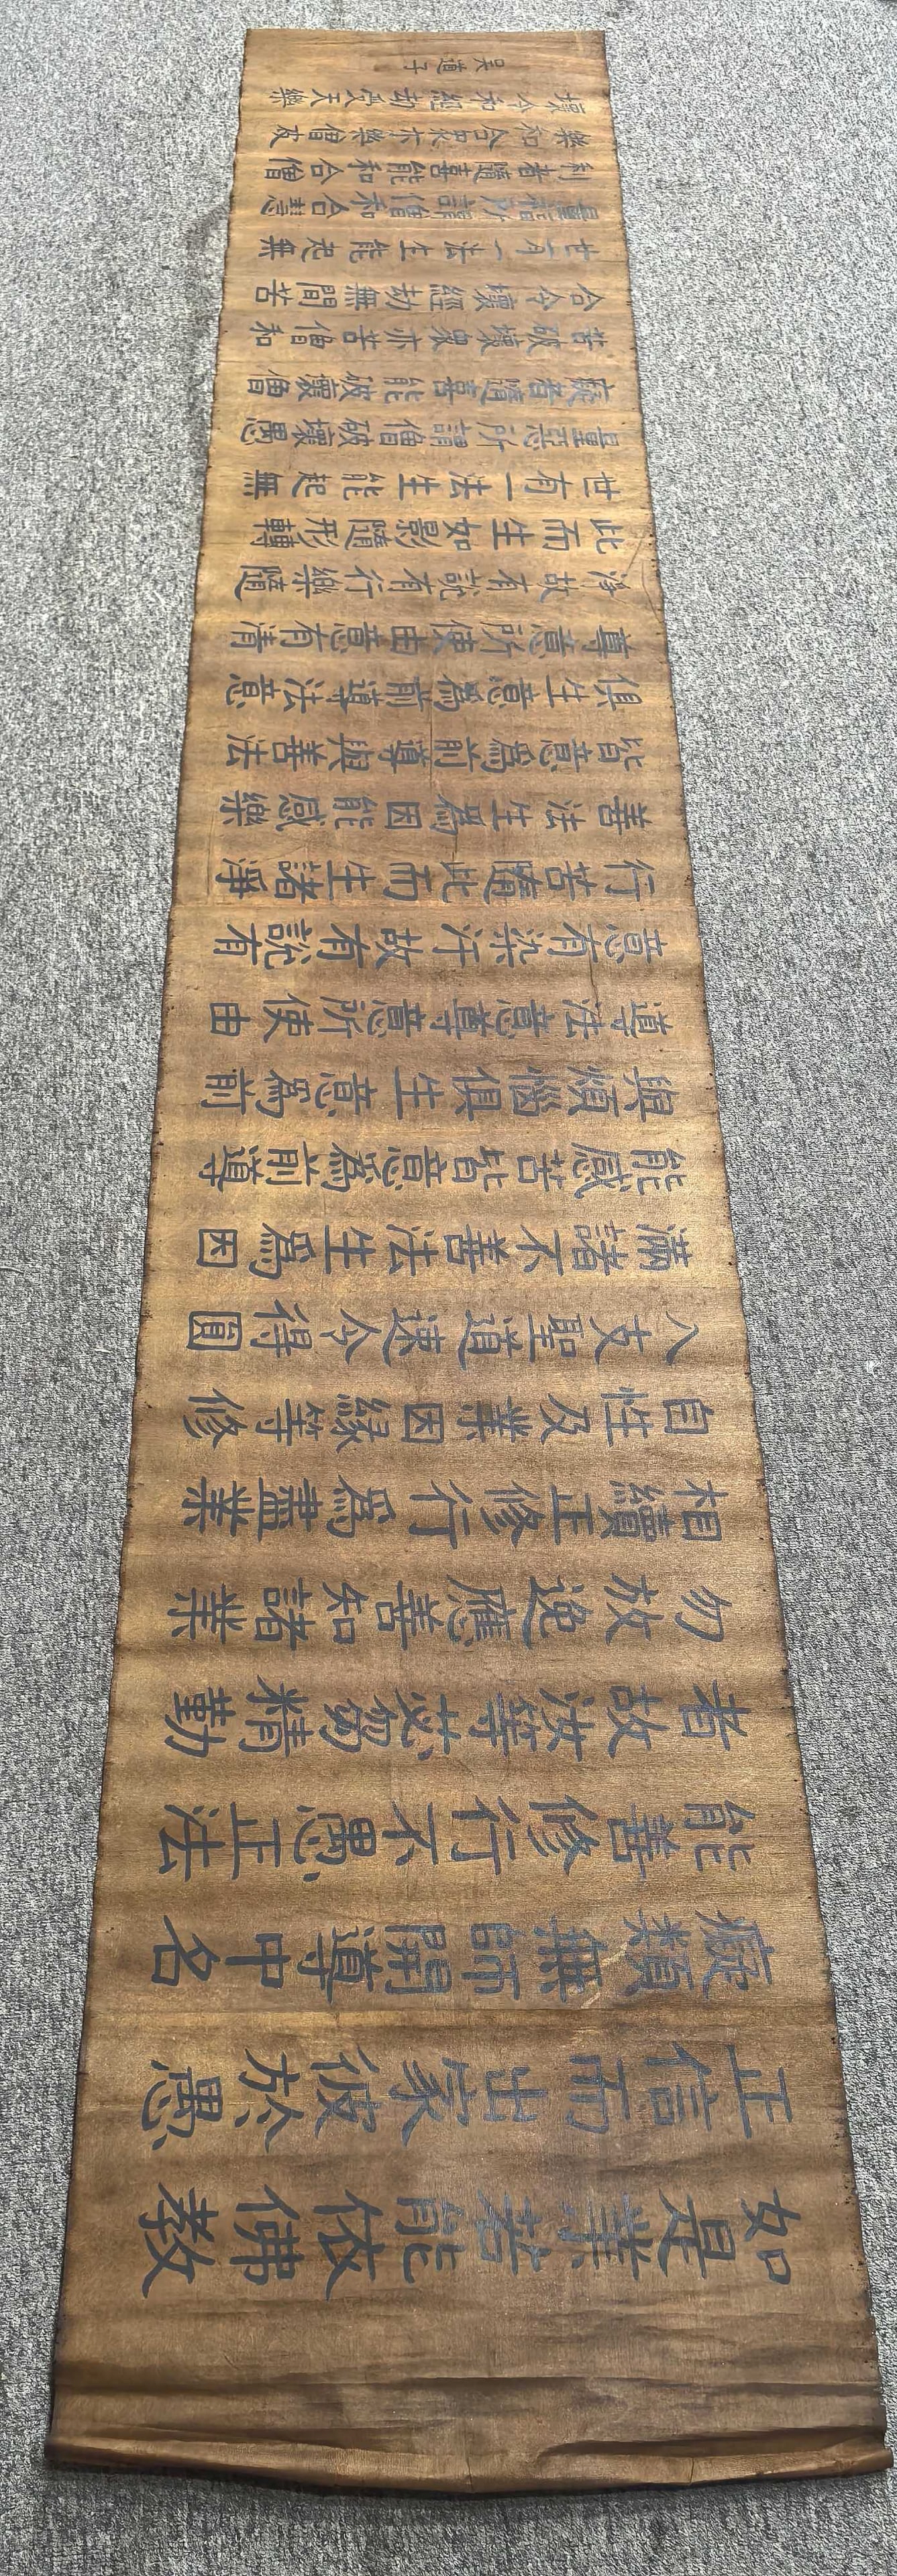 如是業若能依佛教
正信而出家彼於愚
癡類無師開導中名
能善修行不愚正法
者故汝等苾芻精勤
勿放逸應善知諸業
相續正修行爲盡業
自性及業因緣等修
八支聖道速令得圓
滿諸不善法生爲因
能感苦皆意爲前導
與煩惱俱生意爲前
導法意尊意所使由
意有染汙故有説有
行苦隨此而生諸淨
善法生爲因能感樂
皆意爲前導與善法
俱生意爲前導法意
尊意所使由意有清
淨故有説有行樂隨
此而生如影隨形轉
世有一法生能起無
量惡所謂僧破壞愚
癡者隨喜能破壞僧
苦破壞衆亦苦僧和
合令壞經劫無間苦
世有一法生能起無
量福所謂僧和合慧
利者隨喜能和合僧
樂和合衆亦樂僧
壞令和經劫受天樂
吴道子